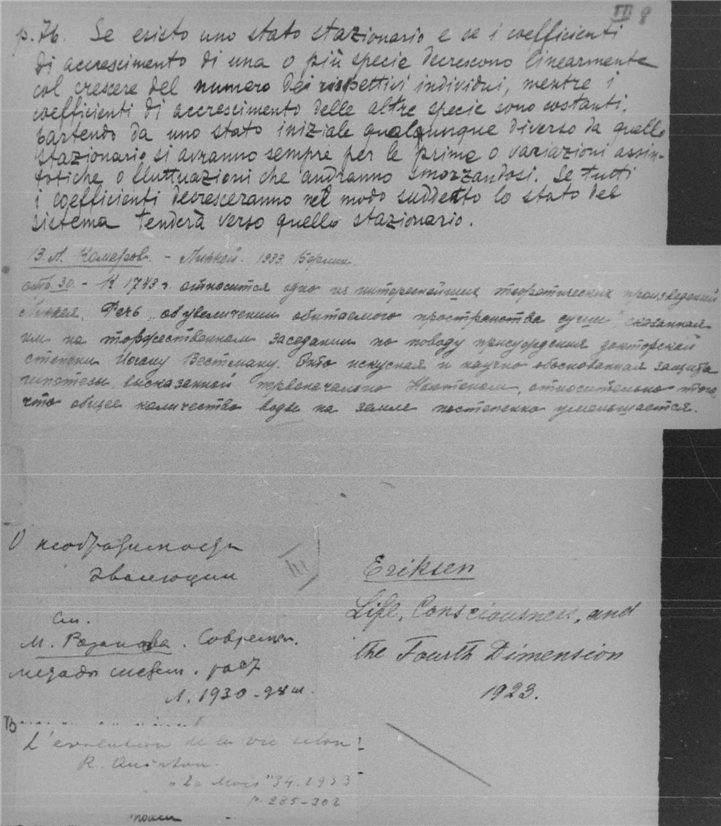 III 8
p. 76. Se esisto uno stato stazionario e se i coefficienti
di accrescimento di una o più specie decrescono linearmente
col crescere del numero dei rispettivi individui, mentre i
coefficienti di accrescimento delle altre specie sono costanti,
partendo da uno stato iniziale qualqunque diverso da quello
stazionario si avranno sempre per le prime o variazioni assin-
totiche o fluttuazioni che andranno smorzandosi. Se tutti
i coefficienti decresceranno nel modo suddetto lo stato del
sistema tenderà verso quello stazionario.
В. Л. Комаров. - Линней. 1933. Берлин.
стр. 30. - К 1743 г. относится одно из интереснейших теоретических произведений
Линнея. Речь "об увеличении обитаемого пространства суши" сказанная
им на торжественном заседании по поводу присуждения докторской
степени Иогану Вестману. Это искусная и научно обоснованная защита
гипотезы, высказанной первоначально Ньютоном, относительно того,
что общее количество воды на земле постепенно уменьшается.
О необратимости
эволюции
III
см.
М. Розанова. Современ.
методы систем. раст
Л. 1930
Eriksen
Life, Consciousness, and
the Fourth Dimension
1923.
L'evolution de la vie selon
R. Quinton.
"Le Mois" 34. 1933
p. 285-302